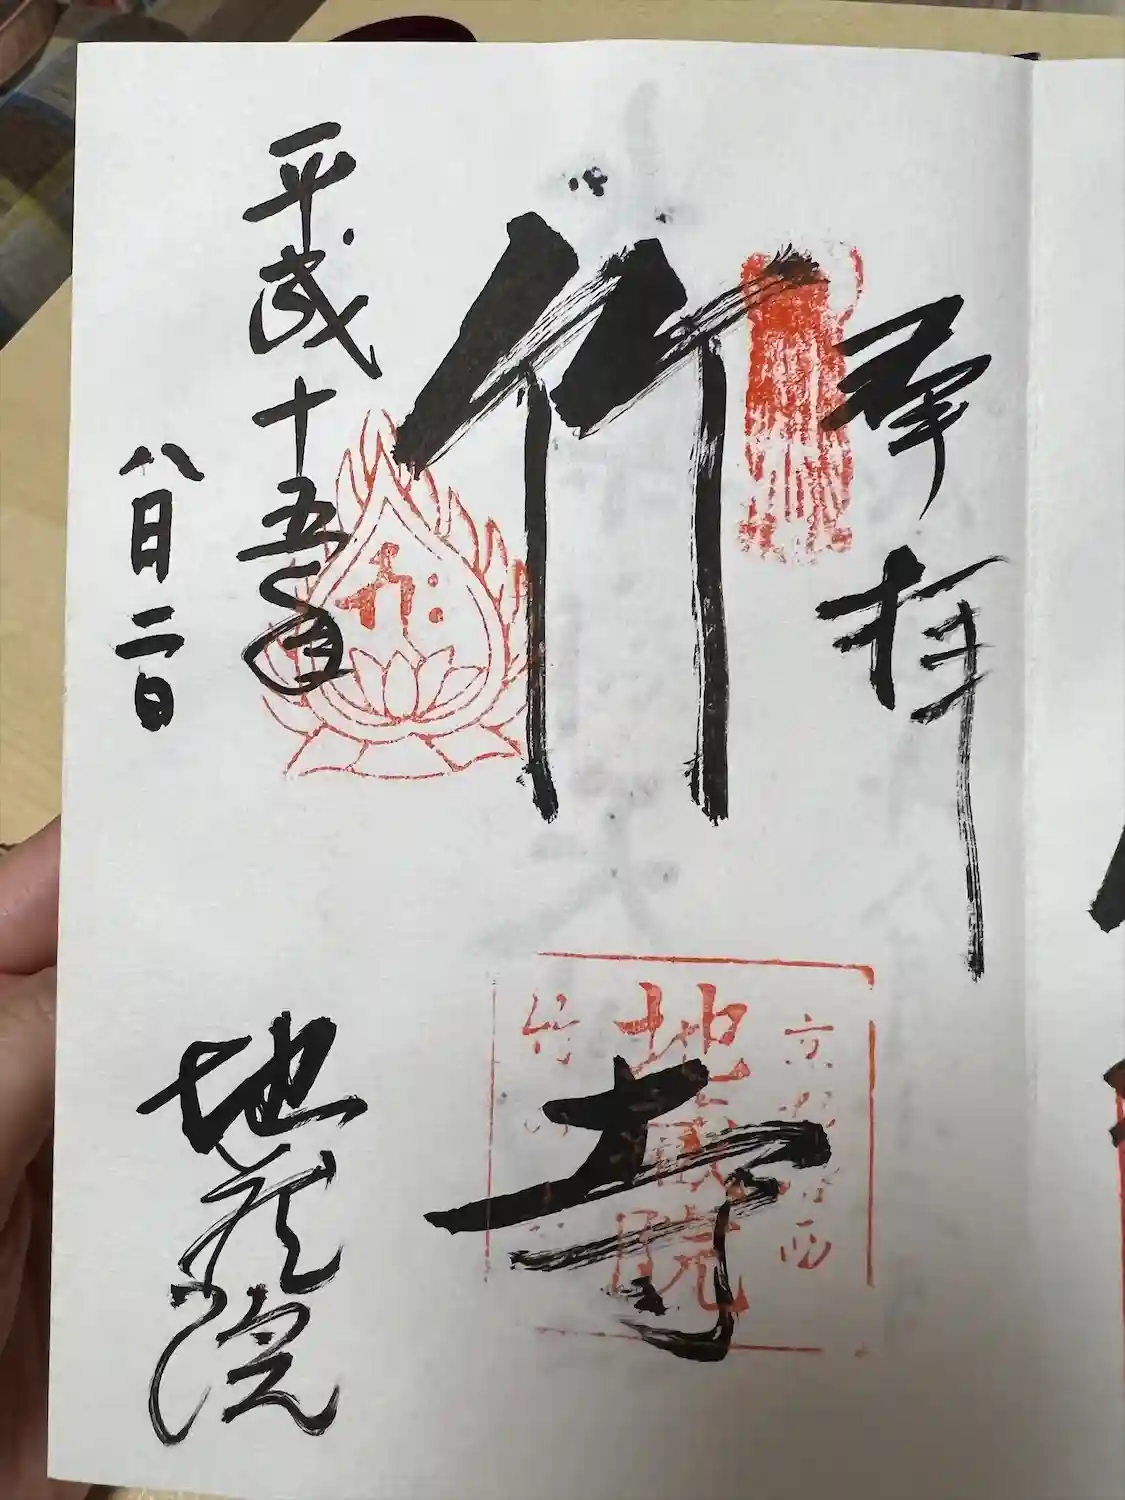 奉拝
竹寺
京都洛西
地蔵院
竹
平成十五年
八月二日
地蔵院